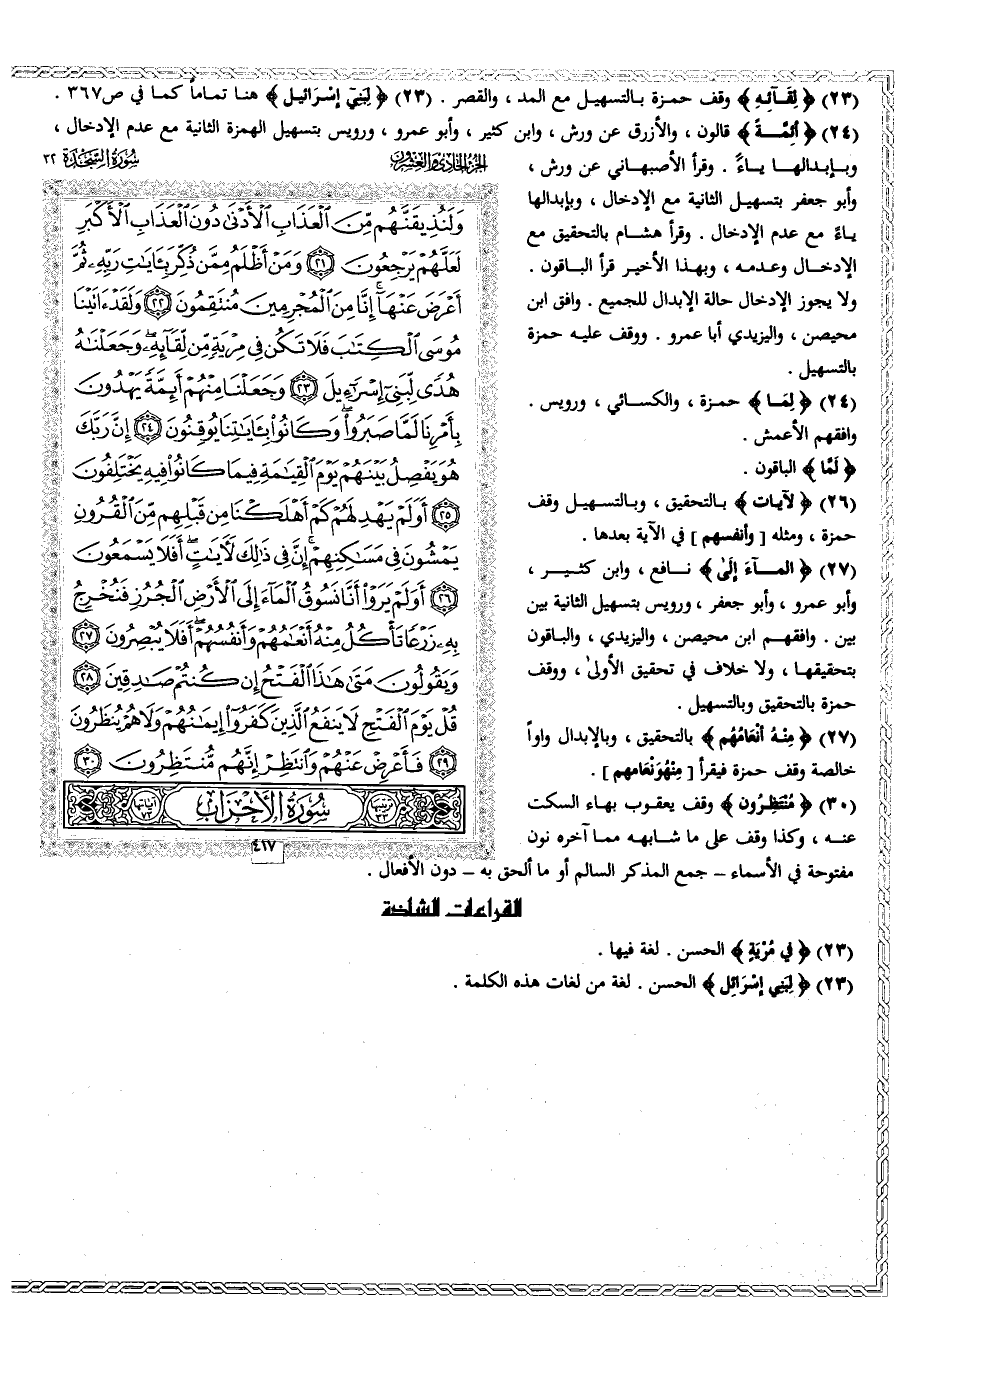 (٢٣) ﴿ لِقَآئِهِ ﴾ وقف حمزة بالتسهيل مع المد ، والقصر . (٢٣) ﴿ لِبَنِيٓ إِسْرَائيل ﴾ هنا تماماً كما في ص٣٦٧ .
(٢٤) ﴿ أَئِمَّةً ﴾ قالون ، والأزرق عن ورش ، وابن كثير ، وأبو عمرو ، ورويس بتسهيل الهمزة الثانية مع عدم الإدخال ،
وبإبدالها ياءً . وقرأ الأصبهاني عن ورش ،
وأبو جعفر بتسهيل الثانية مع الإدخال ، وبإبدالها
ياءً مع عدم الإدخال . وقرأ هشام بالتحقيق مع
الإدخال وعدمه ، وبهذا الأخير قرأ الباقون .
ولا يجوز الإدخال حالة الإبدال للجميع . وافق ابن
محيصن ، واليزيدي أبا عمرو . ووقف عليه حمزة
بالتسهيل .
(٢٤) ﴿ لِمَا ﴾ حمزة ، والكسائي ، ورويس .
وافقهم الأعمش .
﴿ لَمَّا ﴾ الباقون .
(٢٦) ﴿ لآيات ﴾ بالتحقيق ، وبالتسهيل وقف
حمزة ، ومثله [ وأنفسهم ] في الآية بعدها .
(٢٧) ﴿ المآءَ إِلَىٰ ﴾ نافع ، وابن كثير ،
وأبو عمرو ، وأبو جعفر ، ورويس بتسهيل الثانية بين
بين . وافقهم ابن محيصن ، واليزيدي ، والباقون
بتحقيقها ، ولا خلاف في تحقيق الأولىٰ ، ووقف
حمزة بالتحقيق وبالتسهيل .
(٢٧) ﴿ مِنْهُ أَنْعَامُهُم ﴾ بالتحقيق ، وبالإبدال واواً
خالصة وقف حمزة فيقرأ [ مِنْهُوَنْعَامهم ] .
(٣٠) ﴿ مُنْتَظِرُون ﴾ وقف يعقوب بهاء السكت
عنه ، وكذا وقف على ما شابهه مما آخره نون
مفتوحة في الأسماء – جمع المذكر السالم أو ما ألحق به – دون الأفعال .
الجزء الحادي والعشرون
سُورَةُ السَّجْدَةِ ٣٢
وَلَنُذِيقَنَّهُم مِّنَ ٱلْعَذَابِ ٱلْأَدْنَىٰ دُونَ ٱلْعَذَابِ ٱلْأَكْبَرِ
لَعَلَّهُمْ يَرْجِعُونَ ٢١ وَمَنْ أَظْلَمُ مِمَّن ذُكِّرَ بِـَٔايَٰتِ رَبِّهِۦ ثُمَّ
أَعْرَضَ عَنْهَآ ۚ إِنَّا مِنَ ٱلْمُجْرِمِينَ مُنتَقِمُونَ ٢٢ وَلَقَدْ ءَاتَيْنَا
مُوسَى ٱلْكِتَٰبَ فَلَا تَكُن فِى مِرْيَةٍ مِّن لِّقَآئِهِۦ ۖ وَجَعَلْنَٰهُ
هُدًى لِّبَنِىٓ إِسْرَٰٓءِيلَ ٢٣ وَجَعَلْنَا مِنْهُمْ أَئِمَّةً يَهْدُونَ
بِأَمْرِنَا لَمَّا صَبَرُوا۟ ۖ وَكَانُوا۟ بِـَٔايَٰتِنَا يُوقِنُونَ ٢٤ إِنَّ رَبَّكَ
هُوَ يَفْصِلُ بَيْنَهُمْ يَوْمَ ٱلْقِيَٰمَةِ فِيمَا كَانُوا۟ فِيهِ يَخْتَلِفُونَ
٢٥ أَوَلَمْ يَهْدِ لَهُمْ كَمْ أَهْلَكْنَا مِن قَبْلِهِم مِّنَ ٱلْقُرُونِ
يَمْشُونَ فِى مَسَٰكِنِهِمْ ۚ إِنَّ فِى ذَٰلِكَ لَـَٔايَٰتٍ ۖ أَفَلَا يَسْمَعُونَ
٢٦ أَوَلَمْ يَرَوْا۟ أَنَّا نَسُوقُ ٱلْمَآءَ إِلَى ٱلْأَرْضِ ٱلْجُرُزِ فَنُخْرِجُ
بِهِۦ زَرْعًا تَأْكُلُ مِنْهُ أَنْعَٰمُهُمْ وَأَنفُسُهُمْ ۖ أَفَلَا يُبْصِرُونَ ٢٧
وَيَقُولُونَ مَتَىٰ هَٰذَا ٱلْفَتْحُ إِن كُنتُمْ صَٰدِقِينَ ٢٨
قُلْ يَوْمَ ٱلْفَتْحِ لَا يَنفَعُ ٱلَّذِينَ كَفَرُوٓا۟ إِيمَٰنُهُمْ وَلَا هُمْ يُنظَرُونَ
٢٩ فَأَعْرِضْ عَنْهُمْ وَٱنتَظِرْ إِنَّهُم مُّنتَظِرُونَ ٣٠
ترتيبها ٣٣ سُورَةُ الْأَحْزَابِ آياتها ٧٣
٤١٧
القراءات الشاذة
(٢٣) ﴿ في مُرْيَةٍ ﴾ الحسن . لغة فيها .
(٢٣) ﴿ لِبَنِي إِسْرَائِل ﴾ الحسن . لغة من لغات هذه الكلمة .